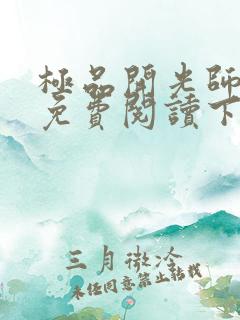 極品開光師
免費閱讀下
三月微冷
未經同意禁止轉載